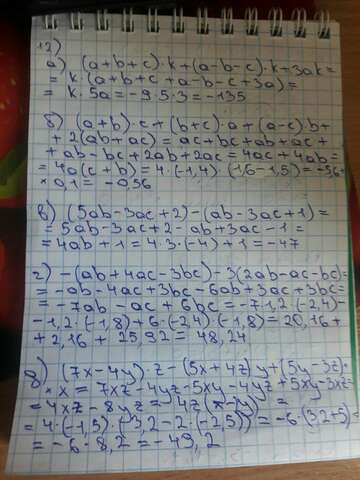 12)
а) (a+b+c)·k+(a-b-c)·k+3ak=
=k·(a+b+c+a-b-c+3a)=
=k·5a=-9·5·3=-135
б) (a+b)·c+(b+c)·a+(a-c)·b+
+2(ab+ac)=ac+bc+ab+ac+
+ab-bc+2ab+2ac=4ac+4ab=
=4a(c+b)=4·(-1,4)·(1,6-1,5)=-5,6·
×0,1=-0,56
в) (5ab-3ac+2)-(ab-3ac+1)=
=5ab-3ac+2-ab+3ac-1=
=4ab+1=4·3·(-4)+1=-47
г) -(ab+4ac-3bc)-3(2ab-ac-bc)=
=-ab-4ac+3bc-6ab+3ac+3bc=
=-7ab-ac+6bc=-7·1,2·(-2,4)-
-1,2·(-1,8)+6·(-2,4)·(-1,8)=20,16+
+2,16+25,92=48,24
д) (7x-4y)·z-(5x+4z)y+(5y-3z)·
·x=7xz-4yz-5xy-4yz+5xy-3xz=
=4xz-8yz=4z(x-2y)=
=4·(-1,5)·(3,2-2·(-2,5))=-6·(3,2+5)=
=-6·8,2=-49,2